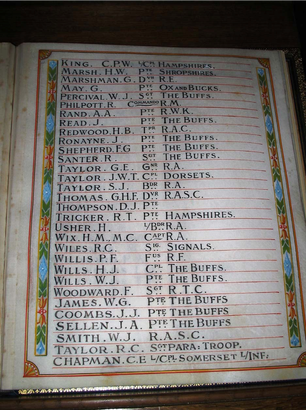 KING, C.P.W. L/CPL HAMPSHIRES.
MARSH, H.W. PTE SHROPSHIRES.
MARSHMAN, G. DVR R.E.
MAY, G. PTE OX AND BUCKS.
PERCIVAL, W.J. SGT THE BUFFS.
PHILPOTT, R. COMMANDO R.M.
RAND, A.A. PTE R.W.K.
READ, J. PTE THE BUFFS.
REDWOOD, H.B. TPR R.A.C.
RONAYNE, J. PTE THE BUFFS.
SHEPHERD, F.G PTE THE BUFFS.
SANTER, R. SGT THE BUFFS.
TAYLOR, G.E. GNR R.A.
TAYLOR, J.W.T. CPL DORSETS.
TAYLOR, S.J. BDR R.A.
THOMAS, G.H.F. DVR R.A.S.C.
THOMPSON, D.J. PTE
TRICKER, R.T. PTE HAMPSHIRES.
USHER, H. L/BDR R.A.
WIX, H.M., M.C. CAPT R.A.
WILES, R.C. SIG. SIGNALS.
WILLIS, P.F. FUS R.F.
WILLS, H.J. CPL THE BUFFS.
WILLS, W.J. PTE THE BUFFS.
WOODWARD, F. SGT R.T.C.
JAMES, W.G. PTE THE BUFFS
COOMBS, J.J. PTE THE BUFFS
SELLEN, J.A. PTE THE BUFFS.
SMITH, W.J. R.A.S.C.
TAYLOR, R.C. SGT PARA: TROOP.
CHAPMAN, C.E L/CPL SOMERSET L/INF: